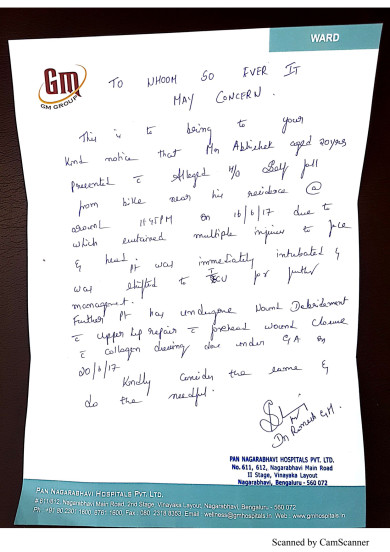 WARD
Gm
GM GROUP
TO WHOOM SO EVER IT
MAY CONCERN.
This is to bring to your
kind notice that Mr Abhishek aged 20yrs
Presented c̄ Alleged H/O Self fall
from bike near his residence @
around 11:45PM on 16/6/17 due to
which sustained multiple injuries to face
& head. Pt was immediately intubated &
was shifted to ICU for further
management.
Further Pt has undergone Wound Debridement
c̄ upper lip repair c̄ forehead wound closure
c̄ collagen dressing done under G.A on
20/6/17
Kindly Consider the same &
do the needful.
PAN NAGARABHAVI HOSPITALS PVT. LTD.
No. 611, 612, Nagarabhavi Main Road
II Stage, Vinayaka Layout,
Nagarabhavi, Bengaluru - 560 072
PAN NAGARABHAVI HOSPITALS PVT. LTD.
# 611/612, Nagarabhavi Main Road, 2nd Stage, Vinayaka Layout, Nagarabhavi, Bengaluru - 560 072
Scanned by CamScanner